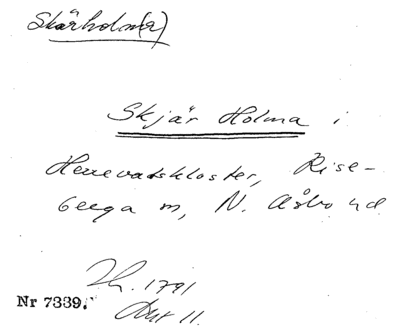 Skärholm(a)
Skjär Holma i
Herrevadskloster, Rise-
berga m, N. Åsbo hd
Th. 1791
Nr 7339.
Avt 11.